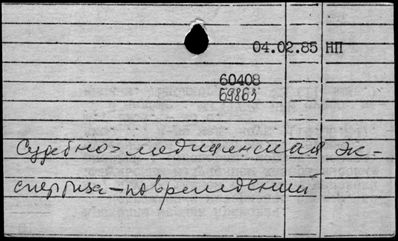 04.02.85 НП
60408
69863
Судебно-медицинская эк-
спертиза-повреждений